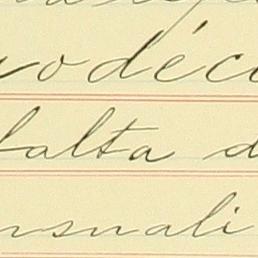 vo déci
falta d
nsnali